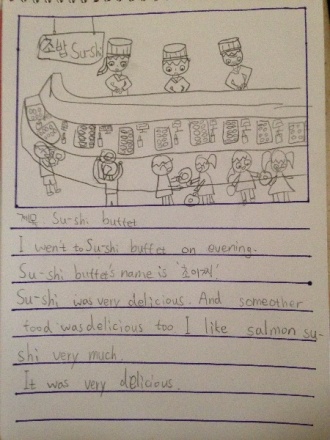 초밥 Su-shi
제목: Su-shi buffet
I went to Su-shi buffet on evening.
Su-shi buffet's name is '초이찌'
Su-shi was very delicious. And someother
food was delicious too I like salmon su-
shi very much.
It was very delicious.